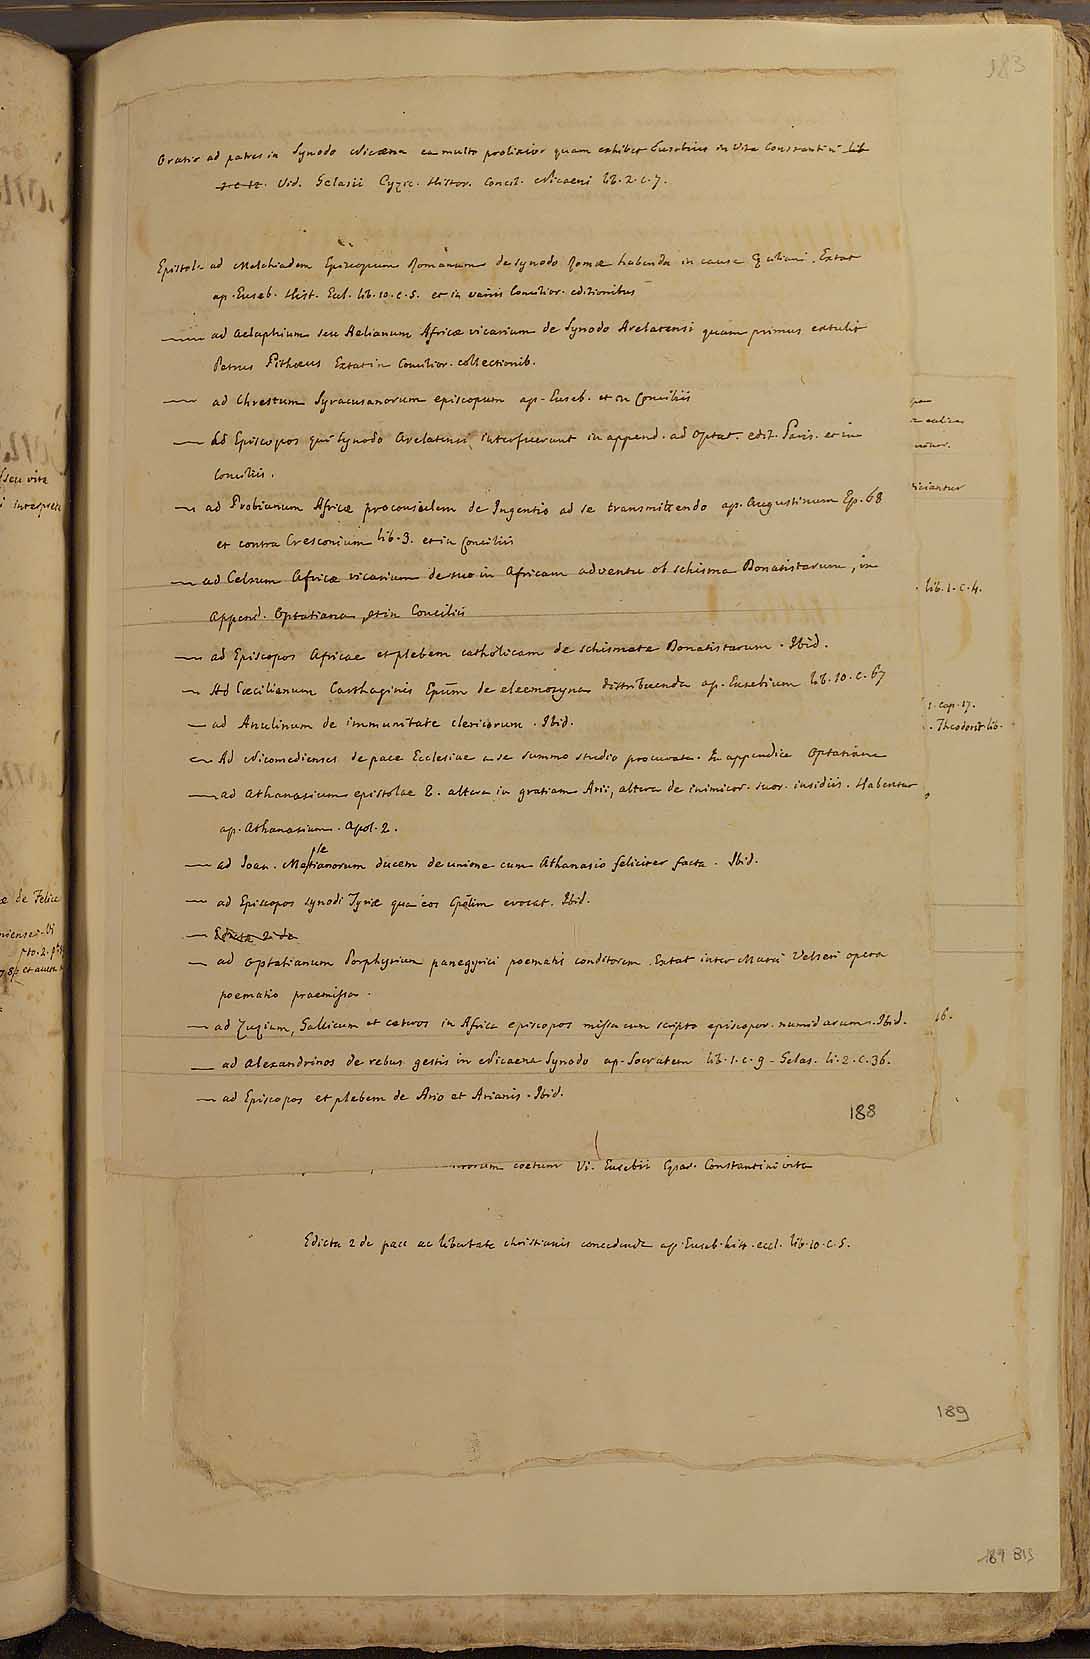 183
Oratio ad patres in Synodo Nicæna ea multo prolixior quam exhibet Eusebius in Vita Constantini lib
Vid. Gelasii Cyzic. Histor. Concil. Nicaeni lib. 2. c. 7.
Epistola ad Melchiadem Episcopum Romanum de synodo Romæ habenda in causa Cæciliani. Extat
ap. Euseb. Hist. Eccl. lib. 10. c. 5. et in variis Concilior. editionibus
— ad Aelaphium seu Aelianum Africæ vicarium de Synodo Arelatensi quam primus extulit
Petrus Pithoeus Extat in Concilior. collectionib.
— ad Chrestum Syracusanorum episcopum ap. Euseb. et in Conciliis
— Ad Episcopos qui Synodo Arelatensi interfuerunt in append. ad Optat. edit. Paris. et in
Conciliis.
— ad Probianum Africæ proconsulem de Ingentio ad se transmittendo ap. Augustinum Ep. 68
et contra Cresconium lib. 3. et in Conciliis
— ad Celsum Africæ vicarium de suo in Africam adventu ob schisma Donatistarum, in
Append. Optatiana, et in Conciliis
— ad Episcopos Africae et plebem catholicam de schismate Donatistarum. Ibid.
— Ad Cæcilianum Carthaginis Epum de eleemosyna distribuenda ap. Eusebium lib. 10. c. 67
— ad Anulinum de immunitate clericorum. Ibid.
— Ad Nicomedienses de pace Ecclesiae a se summo studio procurata. In appendice Optatiana
— ad Athanasium epistolae 2. altera in gratiam Arii, altera de inimicor. suor. insidiis. Habentur
ap. Athanasium. Apol. 2.
— ad Joan. Meletianorum ducem de unione cum Athanasio feliciter facta. Ibid.
— ad Episcopos synodi Tyriæ qua eos Cpolim evocat. Ibid.
— Edicta 2 de
— ad Optatianum Porphyrium panegyrici poematis conditorem. Extat inter Marci Velseri opera
poematio praemissa.
— ad Zuzium, Gallicum et ceteros in Africa episcopos missa cum scripto episcopor. numidarum. Ibid.
— ad Alexandrinos de rebus gestis in Nicaena Synodo ap. Socratem lib. 1. c. 9. Gelas. li. 2. c. 36.
— ad Episcopos et plebem de Ario et Arianis. Ibid.
188
coetum Vi. Eusebii Cæsar. Constantini vita
Edicta 2 de pace ac libertate christianis concedenda ap. Euseb. hist. eccl. lib. 10. c. 5.
189
189 BIS
. lib. 1. c. 4.
1. cap. 17.
. Theodorit lib.
16.
seu vita
i interprete
de Felice